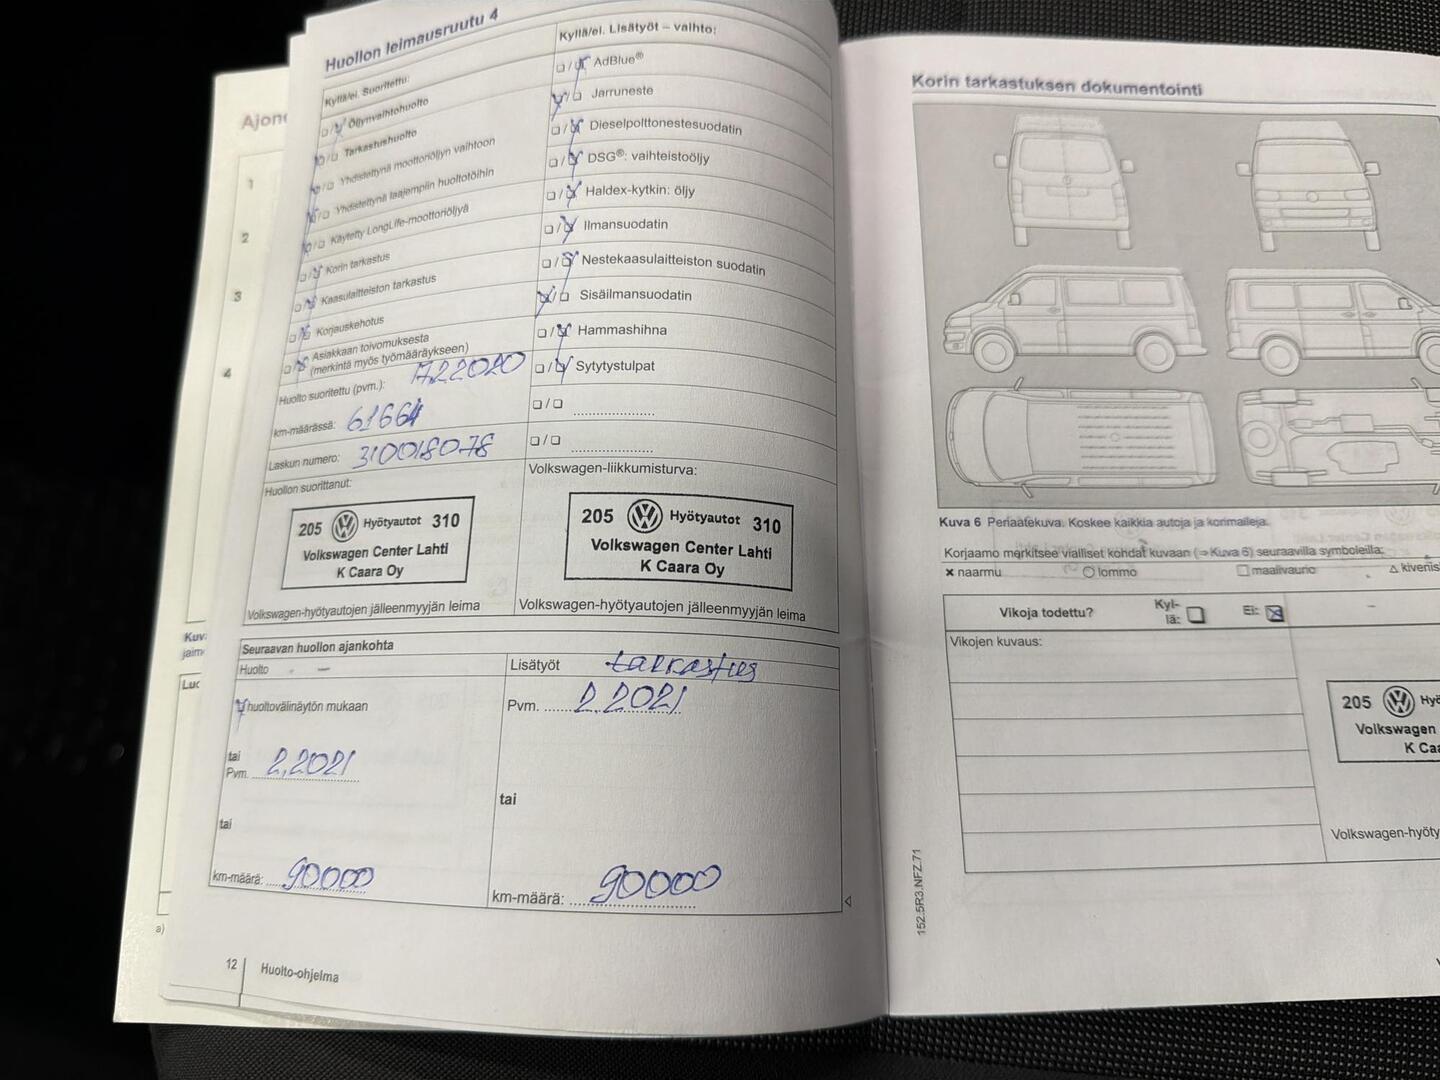 Huollon leimausruutu 4
Kyllä/ei. Suoritettu:
☐/☒ Öljynvaihtohuolto
☒/☐ Tarkastushuolto
☒/☐ Yhdistettynä moottoriöljyn vaihtoon
☒/☐ Yhdistettynä laajempiin huoltotöihin
☒/☐ Käytetty LongLife-moottoriöljyä
☐/☒ Korin tarkastus
☐/☒ Kaasulaitteiston tarkastus
☐/☒ Korjauskehotus
☐/☒ Asiakkaan toivomuksesta
(merkintä myös työmääräykseen)
Huolto suoritettu (pvm.): 17.2.2020
km-määrässä: 61664
Laskun numero: 310018078
Huollon suorittanut:
205 Hyötyautot 310
Volkswagen Center Lahti
K Caara Oy
Volkswagen-hyötyautojen jälleenmyyjän leima
Kyllä/ei. Lisätyöt – vaihto:
☐/☒ AdBlue®
☒/☐ Jarruneste
☐/☒ Dieselpolttonestesuodatin
☐/☒ DSG®: vaihteistoöljy
☐/☒ Haldex-kytkin: öljy
☐/☒ Ilmansuodatin
☐/☒ Nestekaasulaitteiston suodatin
☒/☐ Sisäilmansuodatin
☐/☒ Hammashihna
☐/☒ Sytytystulpat
☐/☐
☐/☐
Volkswagen-liikkumisturva:
205 Hyötyautot 310
Volkswagen Center Lahti
K Caara Oy
Volkswagen-hyötyautojen jälleenmyyjän leima
Seuraavan huollon ajankohta
Huolto –
☒ huoltovälinäytön mukaan
tai
Pvm. 2.2021
tai
km-määrä: 90000
Lisätyöt tarkastus
Pvm. 2.2021
tai
km-määrä: 90000
12 Huolto-ohjelma
1
2
3
4
a)
Korin tarkastuksen dokumentointi
Kuva 6 Periaatekuva. Koskee kaikkia autoja ja korimalleja.
Korjaamo merkitsee vialliset kohdat kuvaan (⇒ Kuva 6) seuraavilla symboleilla:
× naarmu ○ lommo ☐ maalivaurio △
Vikoja todettu? Kyl-lä: ☐ Ei: ☒ –
Vikojen kuvaus:
205
Volkswagen
Volkswagen-hyöty
152.5R3.NFZ.71